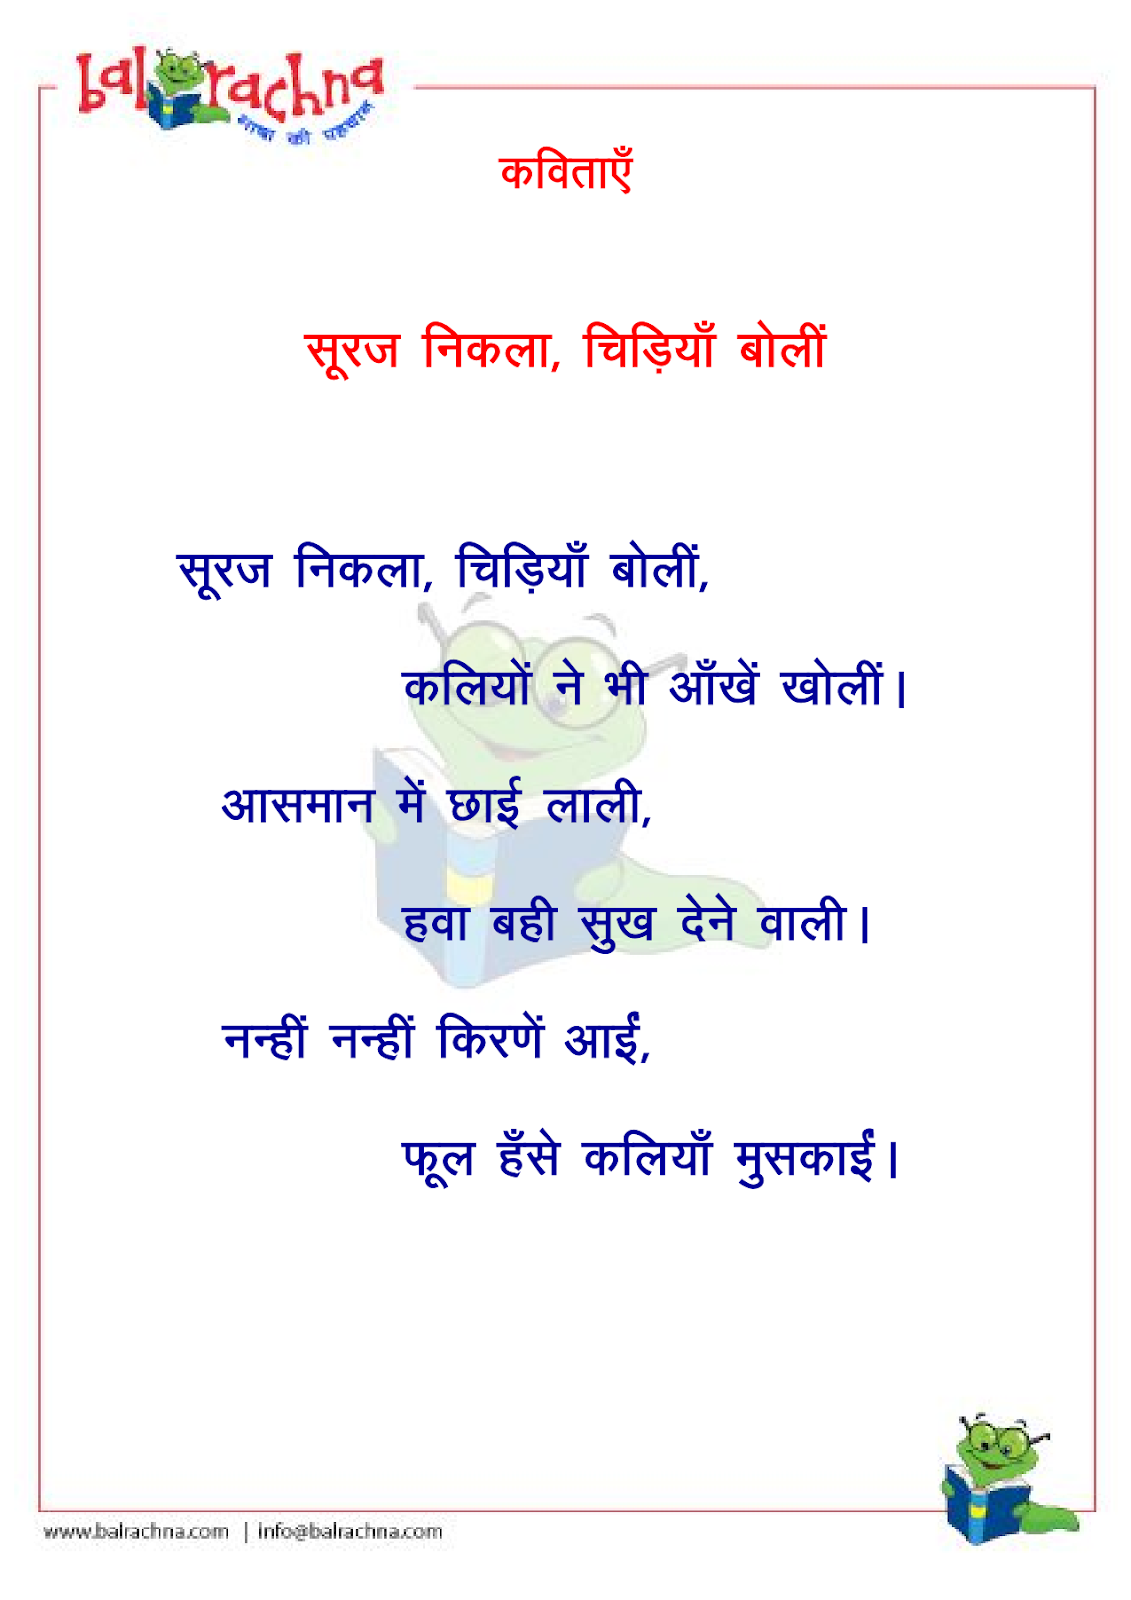 balrachna
भाषा की पहचान
कविताएँ
सूरज निकला, चिड़ियाँ बोलीं
सूरज निकला, चिड़ियाँ बोलीं,
कलियों ने भी आँखें खोलीं।
आसमान में छाई लाली,
हवा बही सुख देने वाली।
नन्हीं नन्हीं किरणें आईं,
फूल हँसे कलियाँ मुसकाईं।
www.balrachna.com | info@balrachna.com